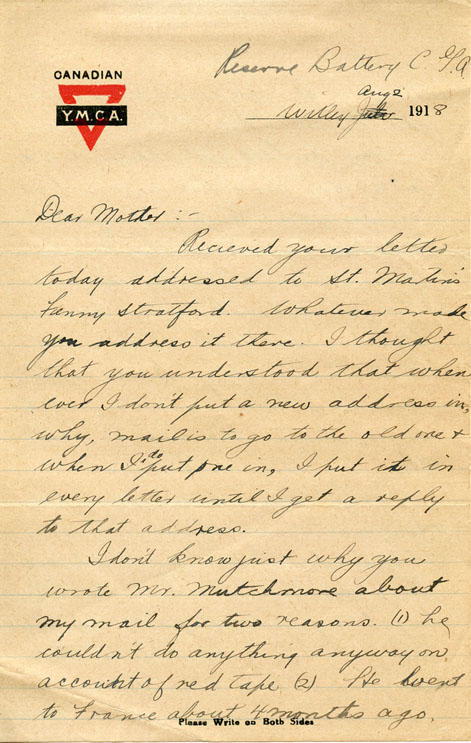 Reserve Battery C. G/A
CANADIAN
Y.M.C.A.
Aug 2
Witley 1918
Dear Mother :-
Recieved your letter
today addressed to St. Martin's
Stratford. Whatever made
you address it there. I thought
that you understood that when
ever I don't put a new address in,
why, mail is to go to the old one +
when I do put one in, I put it in
every letter until I get a reply
to that address.
I don't know just why you
wrote Mr. Mutchmore about
my mail for two reasons. (1) he
couldn't do anything anyway on
account of red tape (2) He went
to France about 4 months ago.
Please Write on Both Sides